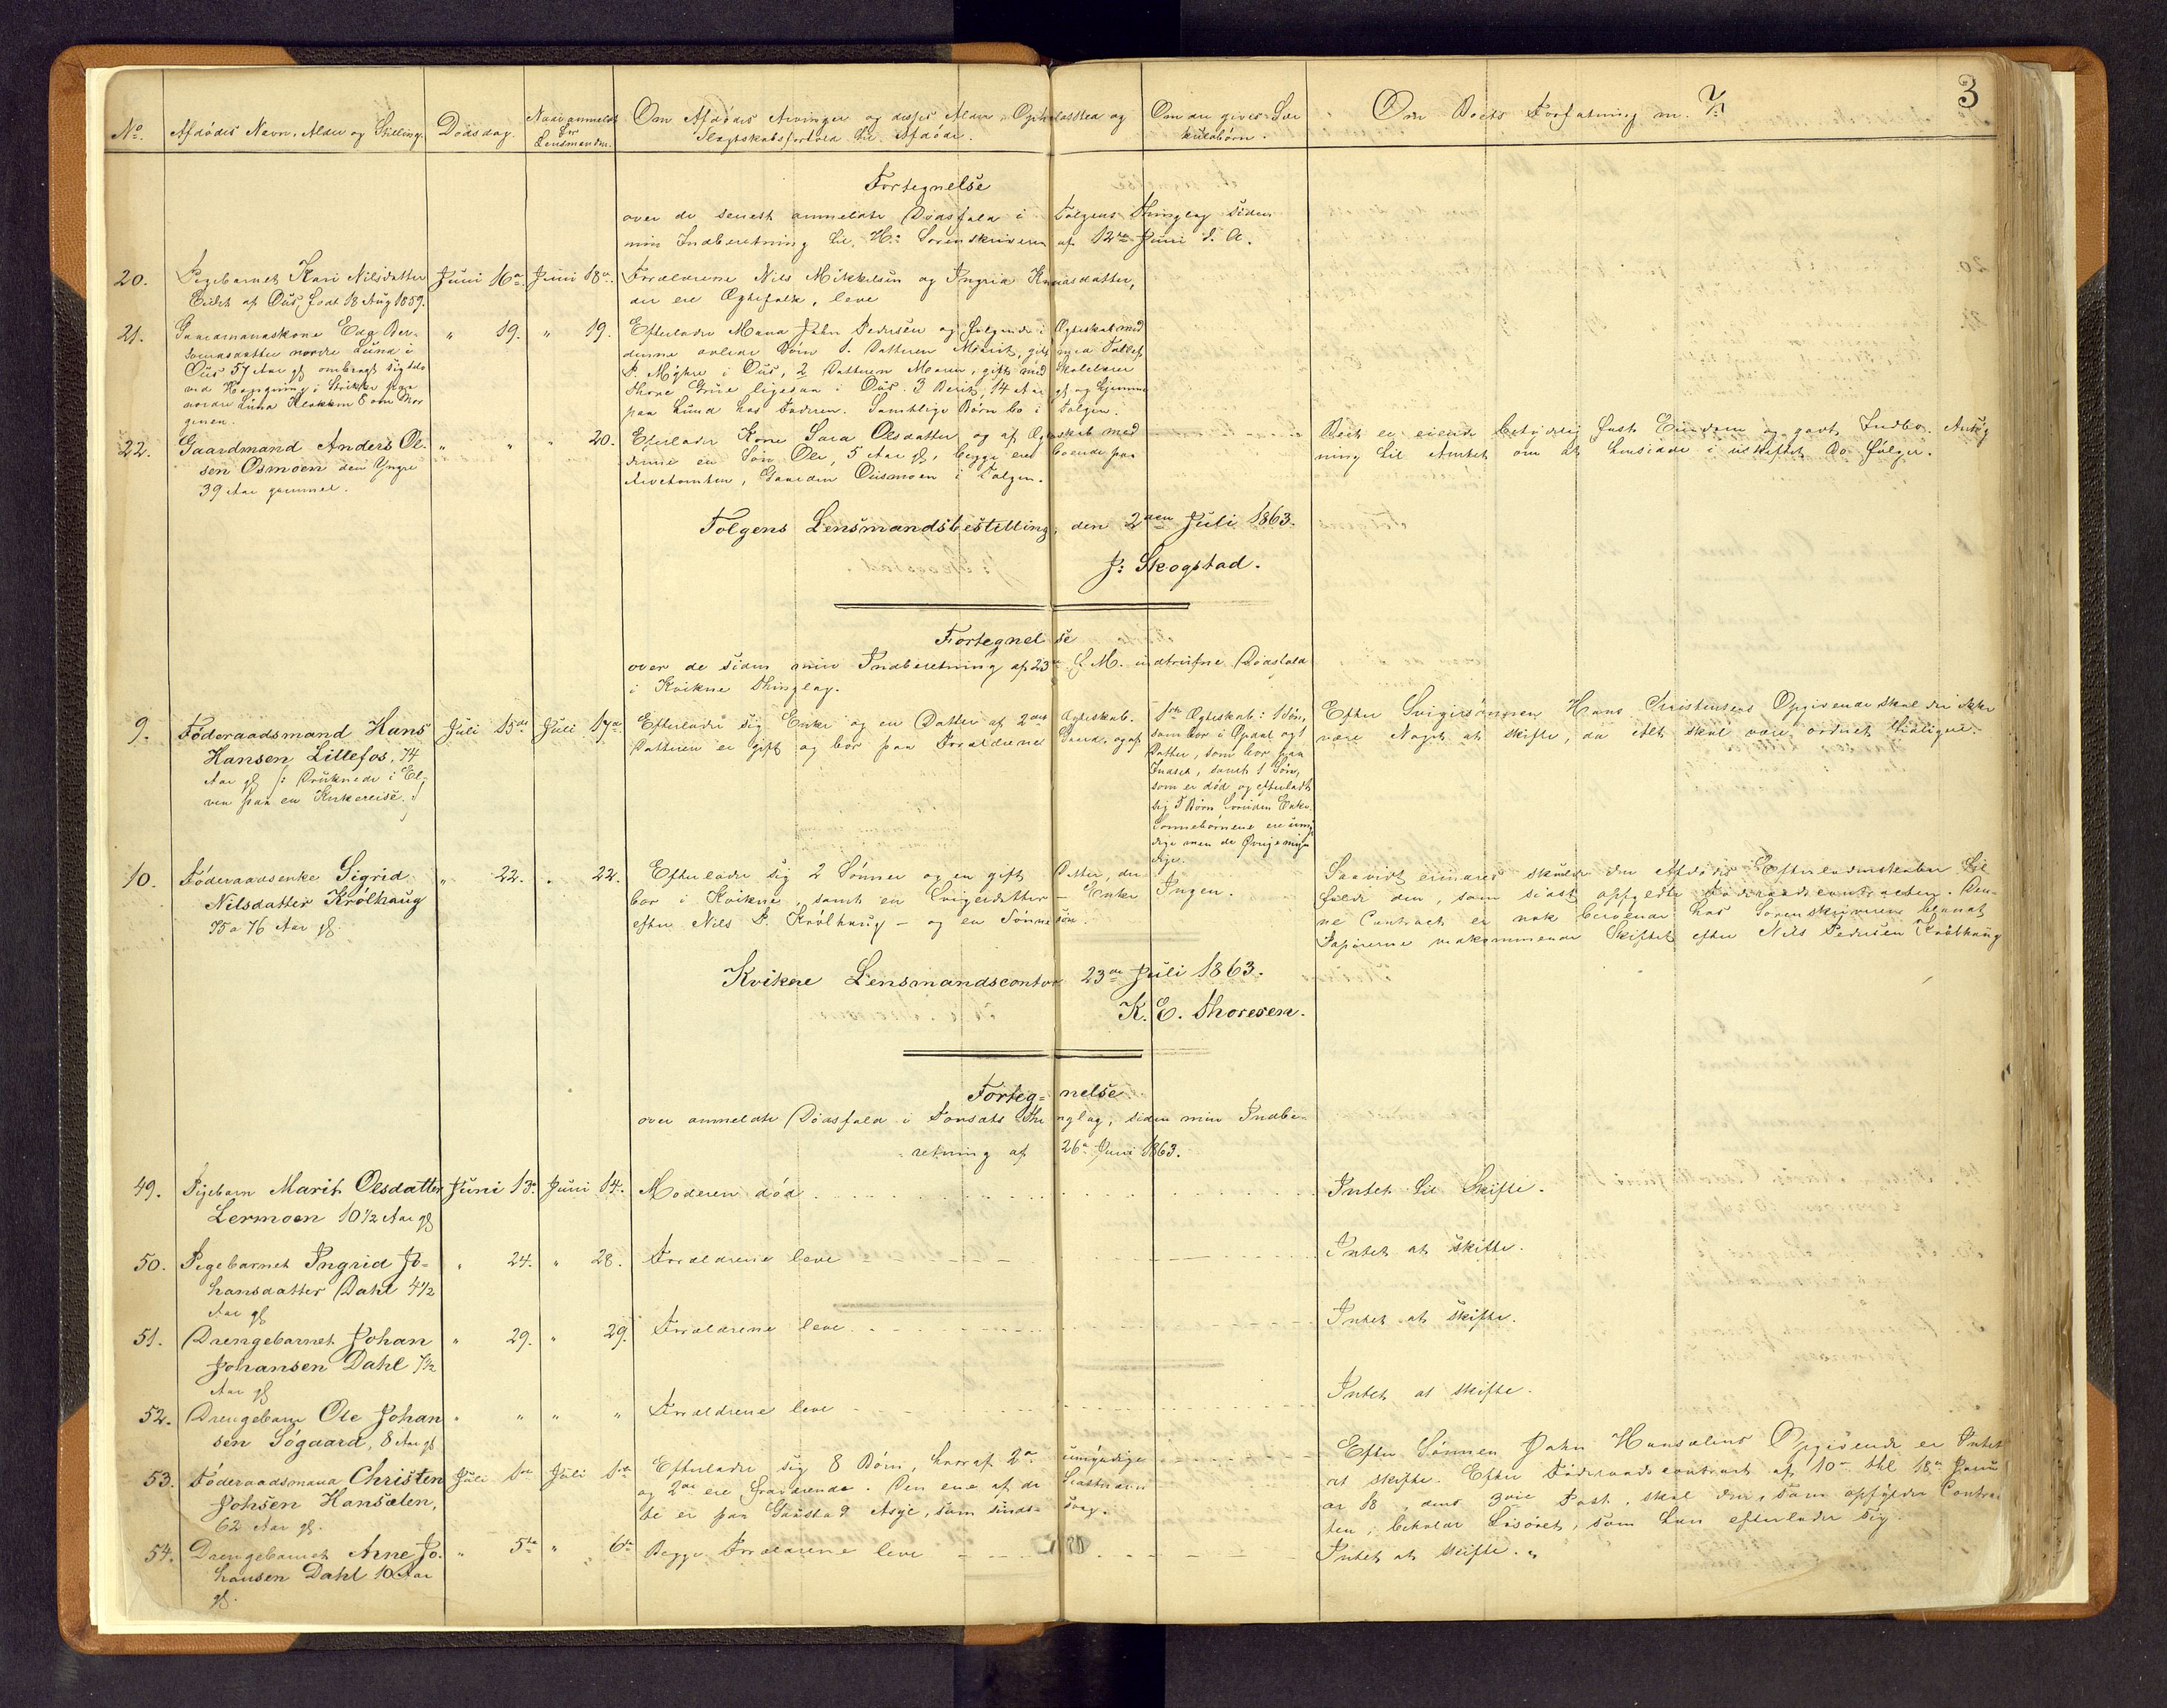 3
No. Afdødes Navn, Alder og Stilling. Dødsdag. Naar anmeldt for Lensmanden. Om Afdødes Arvinger og disses Alder, Opholdssted og Slægtskabsforhold til Afdøde. Om der gives Særkuldsbørn. Om Boets Forfatning m. V.
Fortegnelse
over de senest anmeldte Dødsfald i Tolgens Thinglag siden
min Indberetning til Hr: Sorenskriveren af 12te Juni d. A.
20. Pigebarnet Kari Nilsdatter
Eidet af Øus, født 18 Aug 1859.
Juni 16de Juni 18de
Forældrene Nils Mikkelsen og Ingrid
der ere Ægtefolk, leve
21. Gaardmandskone Eda
nordre Lund i
Øus 57 Aar gl ombragt sig selv
ved Hængning i Strikke paa
nordre Lund Klokken 8 om Mor
genen.
" 19. " 19.
Efterlader Mand John Pedersen og følgende i Ægteskab med
denne avlede Børn 1. Datteren Marit, gift med Tollef
P. Myhre i Øus, 2 Datteren Maren, gift med Skolelærer
Thore Grue ligesaa i Øus. 3 Berit, 14 Aar gl og hjemme
paa Lund hos Faderen. Samtlige Børn bo i Tolgen.
22. Gaardmand Anders Ol-
sen Øsmoen den Yngre
39 Aar gammel.
" " " 20.
Efterlader Kone Sara Olsdatter og af Ægteskab med
denne en Søn Ole, 5 Aar gl, begge ere boende paa
Arvetomten, Gaarden Øiismoen i Tolgen.
Boet er eiende betydelig fast Eiendom og godt Indbo. Ansøg
ning til Amtet om at hensidde i uskiftet Bo følger.
Tolgens Lensmandsbestilling, den 2den Juli 1863.
J: Skogstad.
Fortegnelse
over de siden min Indberetning af 23de f. M. indtrufne Dødsfald
i Kvikne Thinglag.
9. Føderaadsmand Hans
Hansen Littlefos, 74
Aar gl /: Druknede i El-
ven paa en
Juli 15de Juli 17de
Efterlader sig Enke og en Datter af 2det Ægteskab.
Datteren er gift og bor paa Forældrenes Gaard, og af
1ste Ægteskab: 1 Søn,
som bor i Opdal og 1
Datter, som bor paa
Indset, samt 1 Søn,
som er død og efterladt
sig 5 Børn foruden Enke.
Sønnebørnene ere umyn
dige men de Øvrige myn
dige.
Efter Svigersønnen Hans Christensens Opgivende skal der ikke
være Noget at skifte, da Alt skal være ordnet tidligere.
10. Føderaadsenke Sigrid
Nilsdatter Krølhaug
75 a 76 Aar gl.
" 22. " 22.
Efterlader sig 2 Sønner og en gift Datter, der
bor i Kvikne, samt en Svigerdatter – Enke
efter Nils P. Krølhaug – og en Sønnesøn.
Ingen.
Saavidt erindres skulde den Afdødes Efterladenskaber til
falde den, som sidst opfyldte Føderaadscontracten. Den-
ne Contract er nok beroende hos Sorenskriveren blandt
Papirerne vedkommende Skiftet efter Nils Pedersen Krølhaug
Kvikne Lensmandscontor 23de Juli 1863.
K. E. Thoresen.
Forteg-nelse
over anmeldte Dødsfald i Tonsæts Thinglag, siden min Indbe-
retning af 26de Juni 1863.
49. Pigebarn Marit Olsdatter
Lermoen 10½ Aar gl
Juni 13de Juni 14de
Moderen død
Intet til Skifte.
50. Pigebarnet Ingrid Jo-
hansdatter Dahl 4½
Aar gl
" 24. " 28.
Forældrene leve
Intet at skifte.
51. Drengebarnet Johan
Johansen Dahl 7½
Aar gl
" 29. " 29.
Forældrene leve
Intet at skifte.
52. Drengebarn Ole Johan
sen Søgaard, 8 Aar gl
" " " "
Forældrene leve
Intet at skifte.
53. Føderaadsmand Christen
Johsen Hansælen,
62 Aar gl.
Juli 1ste Juli 1ste
Efterlader sig 8 Børn, hvoraf 2de umyndige
og 2de ere fraværende. Den ene af de Sidstnævn
te er paa Gaustad Asyl, som sinds-svag.
Efter Sønnen John Hansælens Opgivende er Intet
at skifte. Efter Føderaadscontract af 10de thl 18de Janu
ar 18 , dens 3die Post, skal den, som opfylder Contrac
ten, beholde Løsøret, som han efterlader sig.
54. Drengebarnet Arne Jo-
hansen Dahl 10 Aar
gl.
" 5te " 6te
Begge Forældrene leve
Intet at skifte.